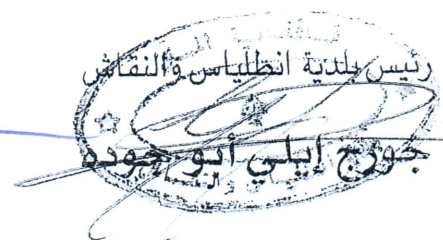 رئيس بلدية انطلياس والنقاش
جورج إيلي أبو جوده